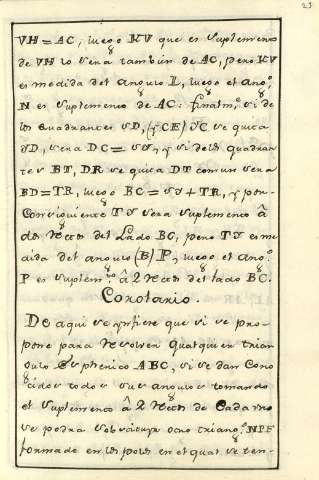 23
VH = AC, luego KV que es Suplemento
de VH lo sera tambien de AC, pero KV
es medida del angulo L, luego el ang.º
N es Suplemento de AC: finalm.te si de
los quadrantes SD, (y CE) SC se quita
SD, sera DC = y si de los quadran
tes BT, DR se quita DT comun sera
BD = TR, luego BC = + TR, y por
Consiguiente TS sera Suplemento â
dos Rectos del Lado BC, pero TS es me
dida del angulo (B) P, luego el ang.º
P es Suplem.to â 2 Rectos del lado BC.
Corolario.
De aqui se ynfiere que si se pro-
pone para Resolver qualquier trian
gulo Spherico ABC, si se dan Cono
cidos todos sus angulos tomando
el Suplemento â 2 Rectos de Cada uno
se podra otro triang.º NPF
formado en los polos en el qual se ten-